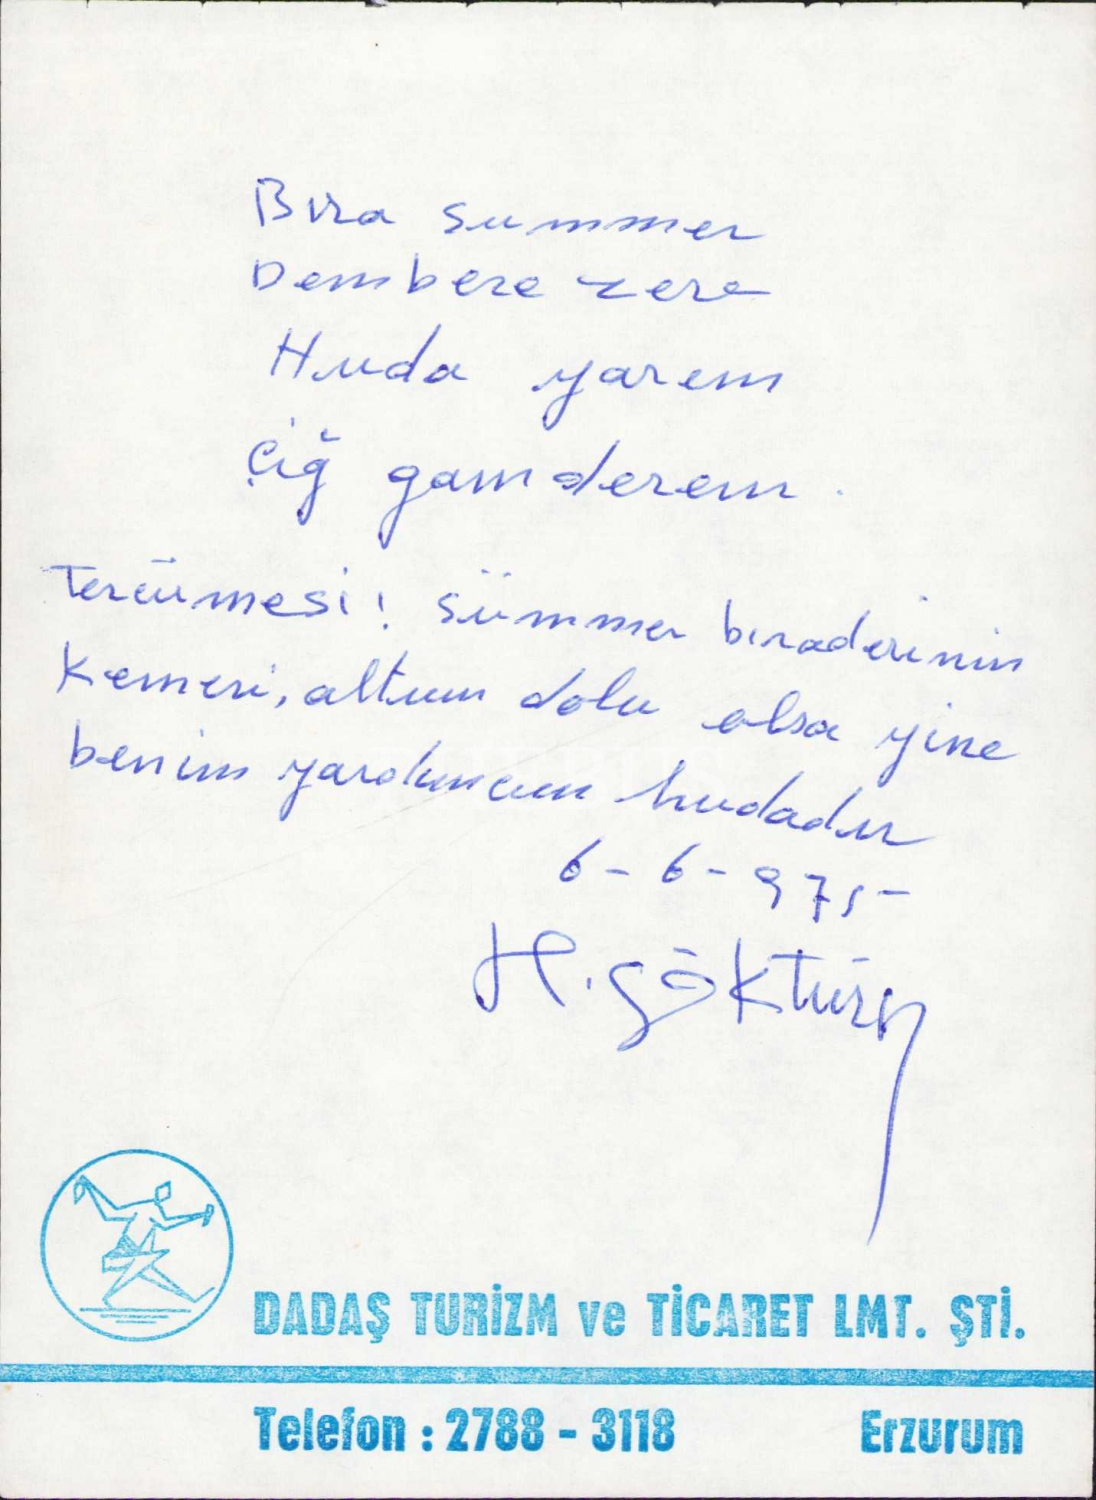 Bıra summer
Dembere zere
Huda yarem
Çiğ gamderem.
Tercümesi! Sümmer bıraderimin
Kemeri, altun dolu olsa yine
benim yardımcım hudadır
6-6-975-
H. Göktürk
DADAŞ TURİZM ve TİCARET LMT. ŞTİ.
Telefon : 2788 - 3118 Erzurum